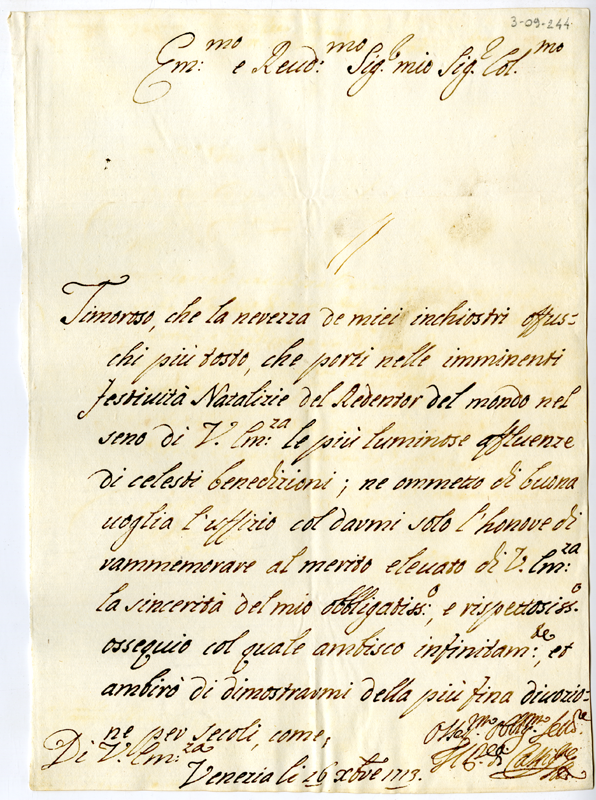 3-09-244
Em:mo e Reud:mo Sig.r mio Sig.r Col.mo
Timoroso, che la nerezza de miei inchiostri offus-
chi più tosto, che porti nelle imminenti
festiuità Natalizie del Redentor del mondo nel
seno di V. Em:za le più luminose affluenze
di celesti benedizioni; ne ommetto di buona
uoglia l'uffizio col darmi solo l'honore di
rammemorare al merito eleuato di V. Em:za
la sincerità del mio obbligatiss:o, e rispettosiss:o
ossequio col quale ambisco infinitam:te, et
ambirò di dimostrarmi della più fina diuozio-
ne per secoli, come,
Di V. Em:za
Venezia li 26 xbre 1713.